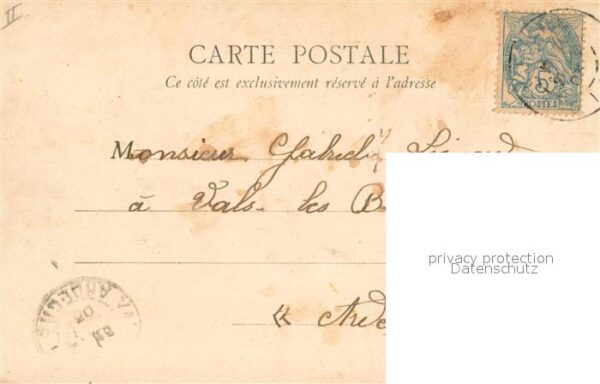 II
CARTE POSTALE
Ce côté est exclusivement réservé à l'adresse
5
POSTES
Monsieur Gabriel
à Vals-les-B
privacy protection
Datenschutz
« Ardè